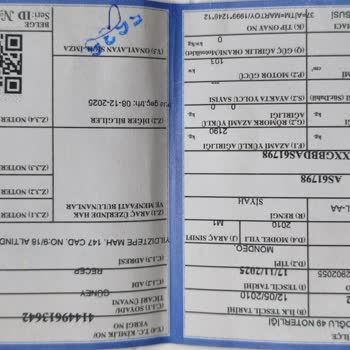 İLÇE
OĞLU 49 NOTERLİĞİ
(B) İLK TESCİL TARİHİ
12/05/2010
(I) TESCİL TARİHİ
17/11/2025
2902055
(D.2) TİPİ
MONDEO
(D.4) MODEL YILI
2010
(J) ARAÇ SINIFI
M1
L-AA
(R) RENGİ
SİYAH
AS61798
XXGBBDAS61798
(F.1) AZAMİ YÜKLÜ
AĞIRLIĞI
2190
kg
(G.2) RÖMORK AZAMİ YÜKLÜ
AĞIRLIĞI
kg
(S.2) AYAKTA YOLCU SAYISI
cm³
(P.2) MOTOR GÜCÜ
103
kw
(Q) GÜÇ AĞIRLIK ORANI
(K) TİP ONAY NO
(Y.4) T.C. KİMLİK NO/
VERGİ NO
41449613642
(C.1.1) SOYADI/
TİCARİ ÜNVANI
GÜNEY
(C.1.2) ADI
RECEP
(C.1.3) ADRESİ
YILDIZTEPE MAH. 147 CAD. NO:9/18 ALTIND
(Z.1) ARAÇ ÜZERİNDE HAK
VE MENFAATİ BULUNANLAR
(Z.2) DİĞER BİLGİLER
08-12-2025
(Z.3.1) NOTER
(Z.3.2) NOTER
(Z.3.3) NOTER
(Z.3.4) NOTER
BELGE
Seri:ID №